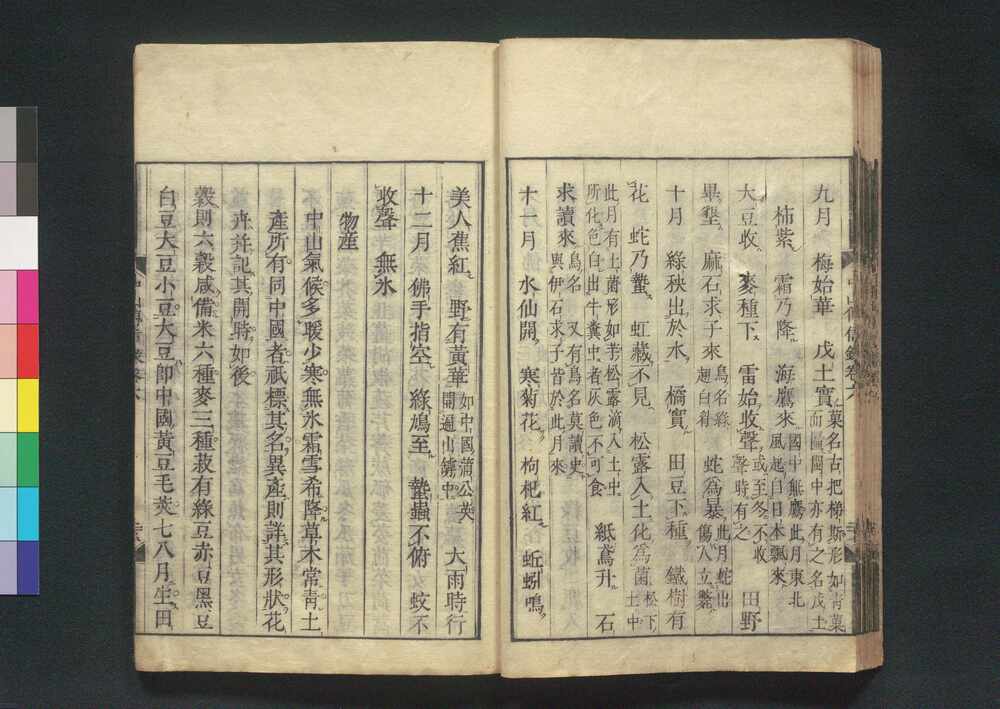 九月 梅始華 戊土實 菓名古把梯斯形如青菓
而區閩中亦有之名戊土
柿紫 霜乃降 海鷹來 國中無鷹此月東北
風起自日本飄來
大豆收 麥種下 雷始收聲 或至冬不收
聲時有之 田野
畢墾 麻石求子來 鳥名綠
翅白 蛇爲暴 此月蛇出
傷人立斃
十月 綠秧出於水 橘實 田豆下種 鐵樹有
花 蛇乃蟄 虹藏不見 松露入土化爲菌 松下
土中
此月有土菌形如芳松露滴入土中
所化色白出牛糞中者灰色不可食 紙鳶升 石
求讀來 鳥名 又有鳥名莫讀史
與伊石求子皆於此月來
十一月 水仙開 寒菊花 枸杞紅 蚯蚓鳴
中山傳信錄卷六
美人蕉紅 野有黃華 如中國蒲公英
開遍山罅中 大雨時行
十二月 佛手指空 綠鳩至 蟄蟲不俯 蚊不
收聲 無氷
物產
中山氣候多暖少寒無氷霜雪希降草木常靑土
產所有同中國者祇標其名異產則詳其形狀花
卉并記其開時如後
穀則六穀咸備米六種麥三種菽有綠豆赤豆黑豆
白豆大豆小豆大豆卽中國黃豆毛莢七八月生田
中山傳信錄卷六